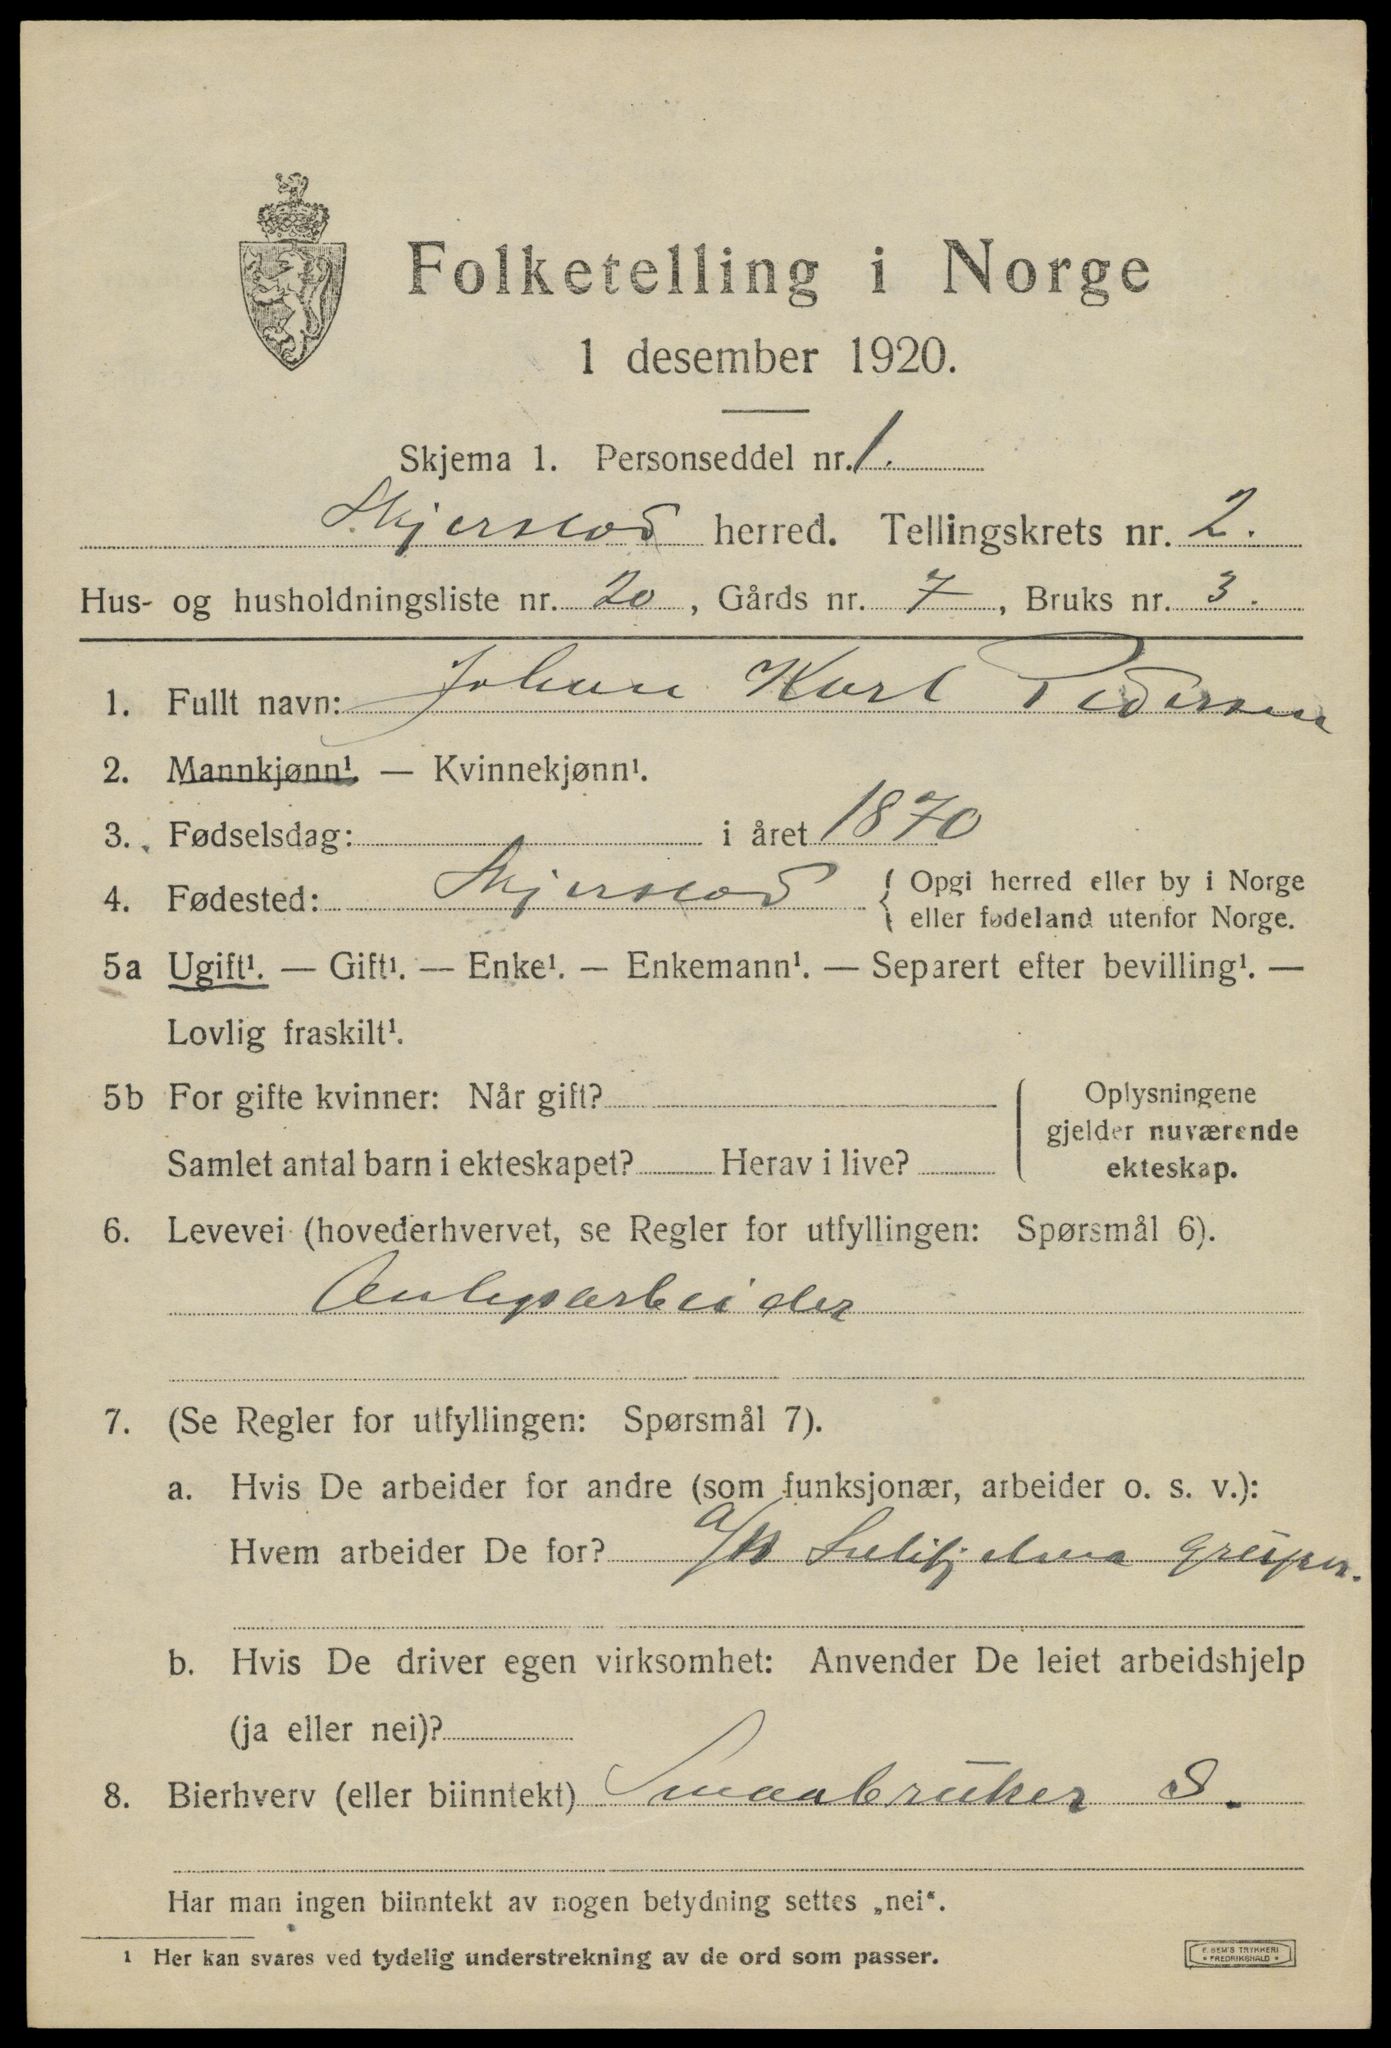 Folketelling i Norge
1 desember 1920.
Skjema 1. Personseddel nr. 1.
Skjerstad herred. Tellingskrets nr. 2.
Hus- og husholdningsliste nr. 20, Gårds nr. 7, Bruks nr. 3.
1. Fullt navn: Johan Karl Pedersen
2. Mannkjønn¹. — Kvinnekjønn¹.
3. Fødselsdag: i året 1870
4. Fødested: Skjerstad { Opgi herred eller by i Norge
eller fødeland utenfor Norge.
5a Ugift¹. — Gift¹. — Enke¹. — Enkemann¹. — Separert efter bevilling¹. —
Lovlig fraskilt¹.
5b For gifte kvinner: Når gift?
Samlet antal barn i ekteskapet? Herav i live?
Oplysningene
gjelder nuværende
ekteskap.
6. Levevei (hovederhvervet, se Regler for utfyllingen: Spørsmål 6).
Anlegsarbeider
7. (Se Regler for utfyllingen: Spørsmål 7).
a. Hvis De arbeider for andre (som funksjonær, arbeider o. s. v.):
Hvem arbeider De for? Sulitjelma gruber.
b. Hvis De driver egen virksomhet: Anvender De leiet arbeidshjelp
(ja eller nei)?
8. Bierhverv (eller biinntekt) Smaabruker S.
Har man ingen biinntekt av nogen betydning settes „nei“.
¹ Her kan svares ved tydelig understrekning av de ord som passer.
E. SEM'S TRYKKERI
* FREDRIKSHALD *